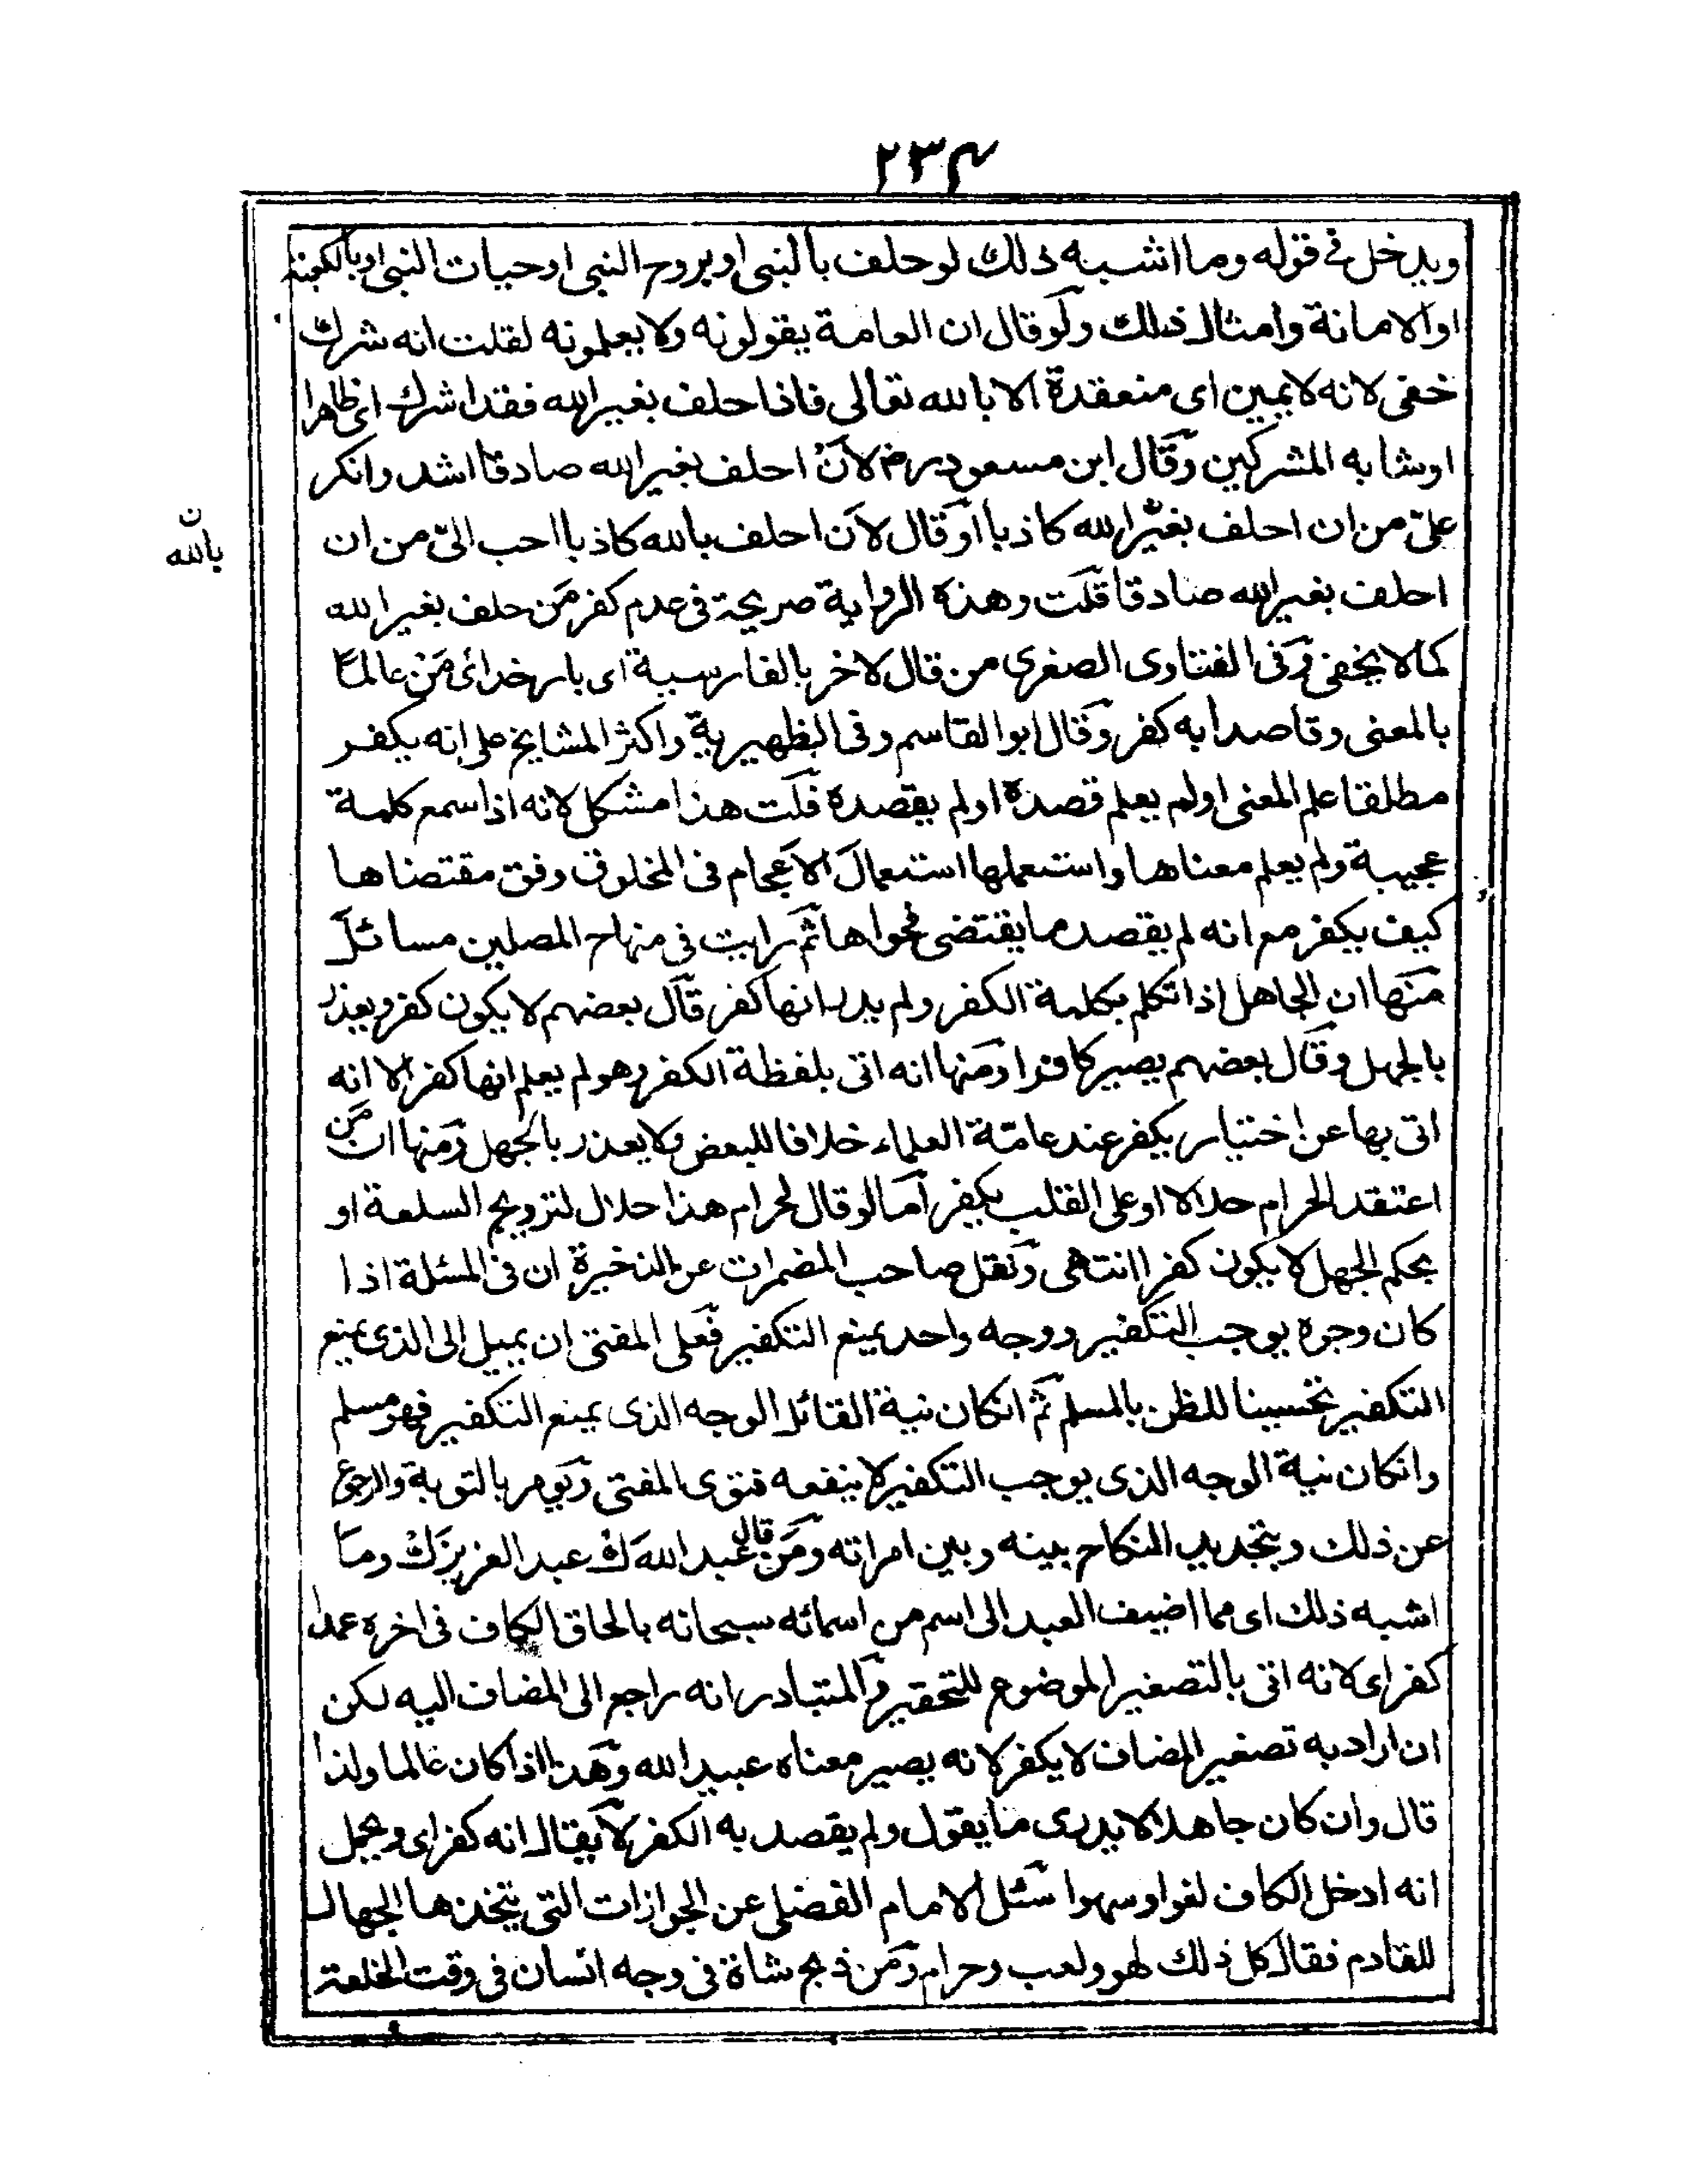 ٢٣٤
ويدخل في قوله وما اشبه ذلك لو حلف بالنبى او بروح النبى او حيات النبى او بالكعبة
او الامانة وامثال ذلك ولو قال ان العامة يقولونه ولا يعلمونه لقلت انه شرك
خفى لانه لا يمين اى منعقدة الا بالله تعالى فاذا حلف بغير الله فقد اشرك اى ظاهرا
او شابه المشركين وقال ابن مسعود رض لان احلف بغير الله صادقا اشد وانكر
على من ان احلف بغير الله كاذبا او قال لان احلف بالله كاذبا احب الى من ان
ن بالله
احلف بغير الله صادقا قلت وهذه الرواية صريحة فى عدم كفر من حلف بغير الله
كما لا يخفى وفى الفتاوى الصغرى من قال لاخر بالفارسية اى بار خدائ من عالما
بالمعنى وقاصدا به كفر وقال ابو القاسم وفى الظهيرية واكثر المشايخ على انه يكفر
مطلقا علم المعنى اولم يعلم قصده اولم يقصده قلت هذا مشكل لانه اذا سمع كلمة
عجيبة ولم يعلم معناها واستعملها استعمال الاعجام فى المخلوق وفق مقتضاها
كيف يكفر مع انه لم يقصد ما يقتضى فحواها ثم رايت فى منهاج المصلين مسائل
منها ان الجاهل اذا تكلم بكلمة الكفر ولم يدر انها كفر قال بعضهم لا يكون كفر ويعذر
بالجهل وقال بعضهم يصير كافرا ومنها انه اتى بلفظة الكفر وهو لم يعلم انها كفر الا انه
اتى بها عن اختيار يكفر عند عامة العلماء خلافا للبعض ولا يعذر بالجهل ومنها ان من
اعتقد الحرام حلالا او على القلب يكفر اما لو قال لحرام هذا حلال لترويج السلعة او
بحكم الجهل لا يكون كفرا انتهى ونقل صاحب المضمرات عن الذخيرة ان فى المسئلة اذا
كان وجوه يوجب التكفير ووجه واحد يمنع التكفير فعلى المفتى ان يميل الى الذى يمنع
التكفير تحسينا للظن بالمسلم ثم انكان نية القائل الوجه الذى يمنع التكفير فهو مسلم
وانكان نية الوجه الذى يوجب التكفير لا ينفعه فتوى المفتى ويومر بالتوبة والرجوع
عن ذلك وبتجديد النكاح بينه وبين امراته ومن قال عبد الله ك عبد العزيزك وما
اشبه ذلك اى مما اضيف العبد الى اسم من اسمائه سبحانه بالحاق الكاف فى اخره عمدا
كفر اى لانه اتى بالتصغير الموضوع للتحقير والمتبادر انه راجع الى المضاف اليه لكن
ان اراد به تصغير المضاف لا يكفر لانه يصير معناه عبيد الله وهذا اذا كان عالما ولذا
قال وان كان جاهلا لا يدرى ما يقول ولم يقصد به الكفر لا يقال انه كفر اى ويحمل
انه ادخل الكاف لغوا وسهوا سئل الامام الفضلى عن الجوازات التى يتخذها الجهال
للقادم فقال كل ذلك لهو ولعب وحرام ومن ذبح شاة فى وجه انسان فى وقت الخلعة